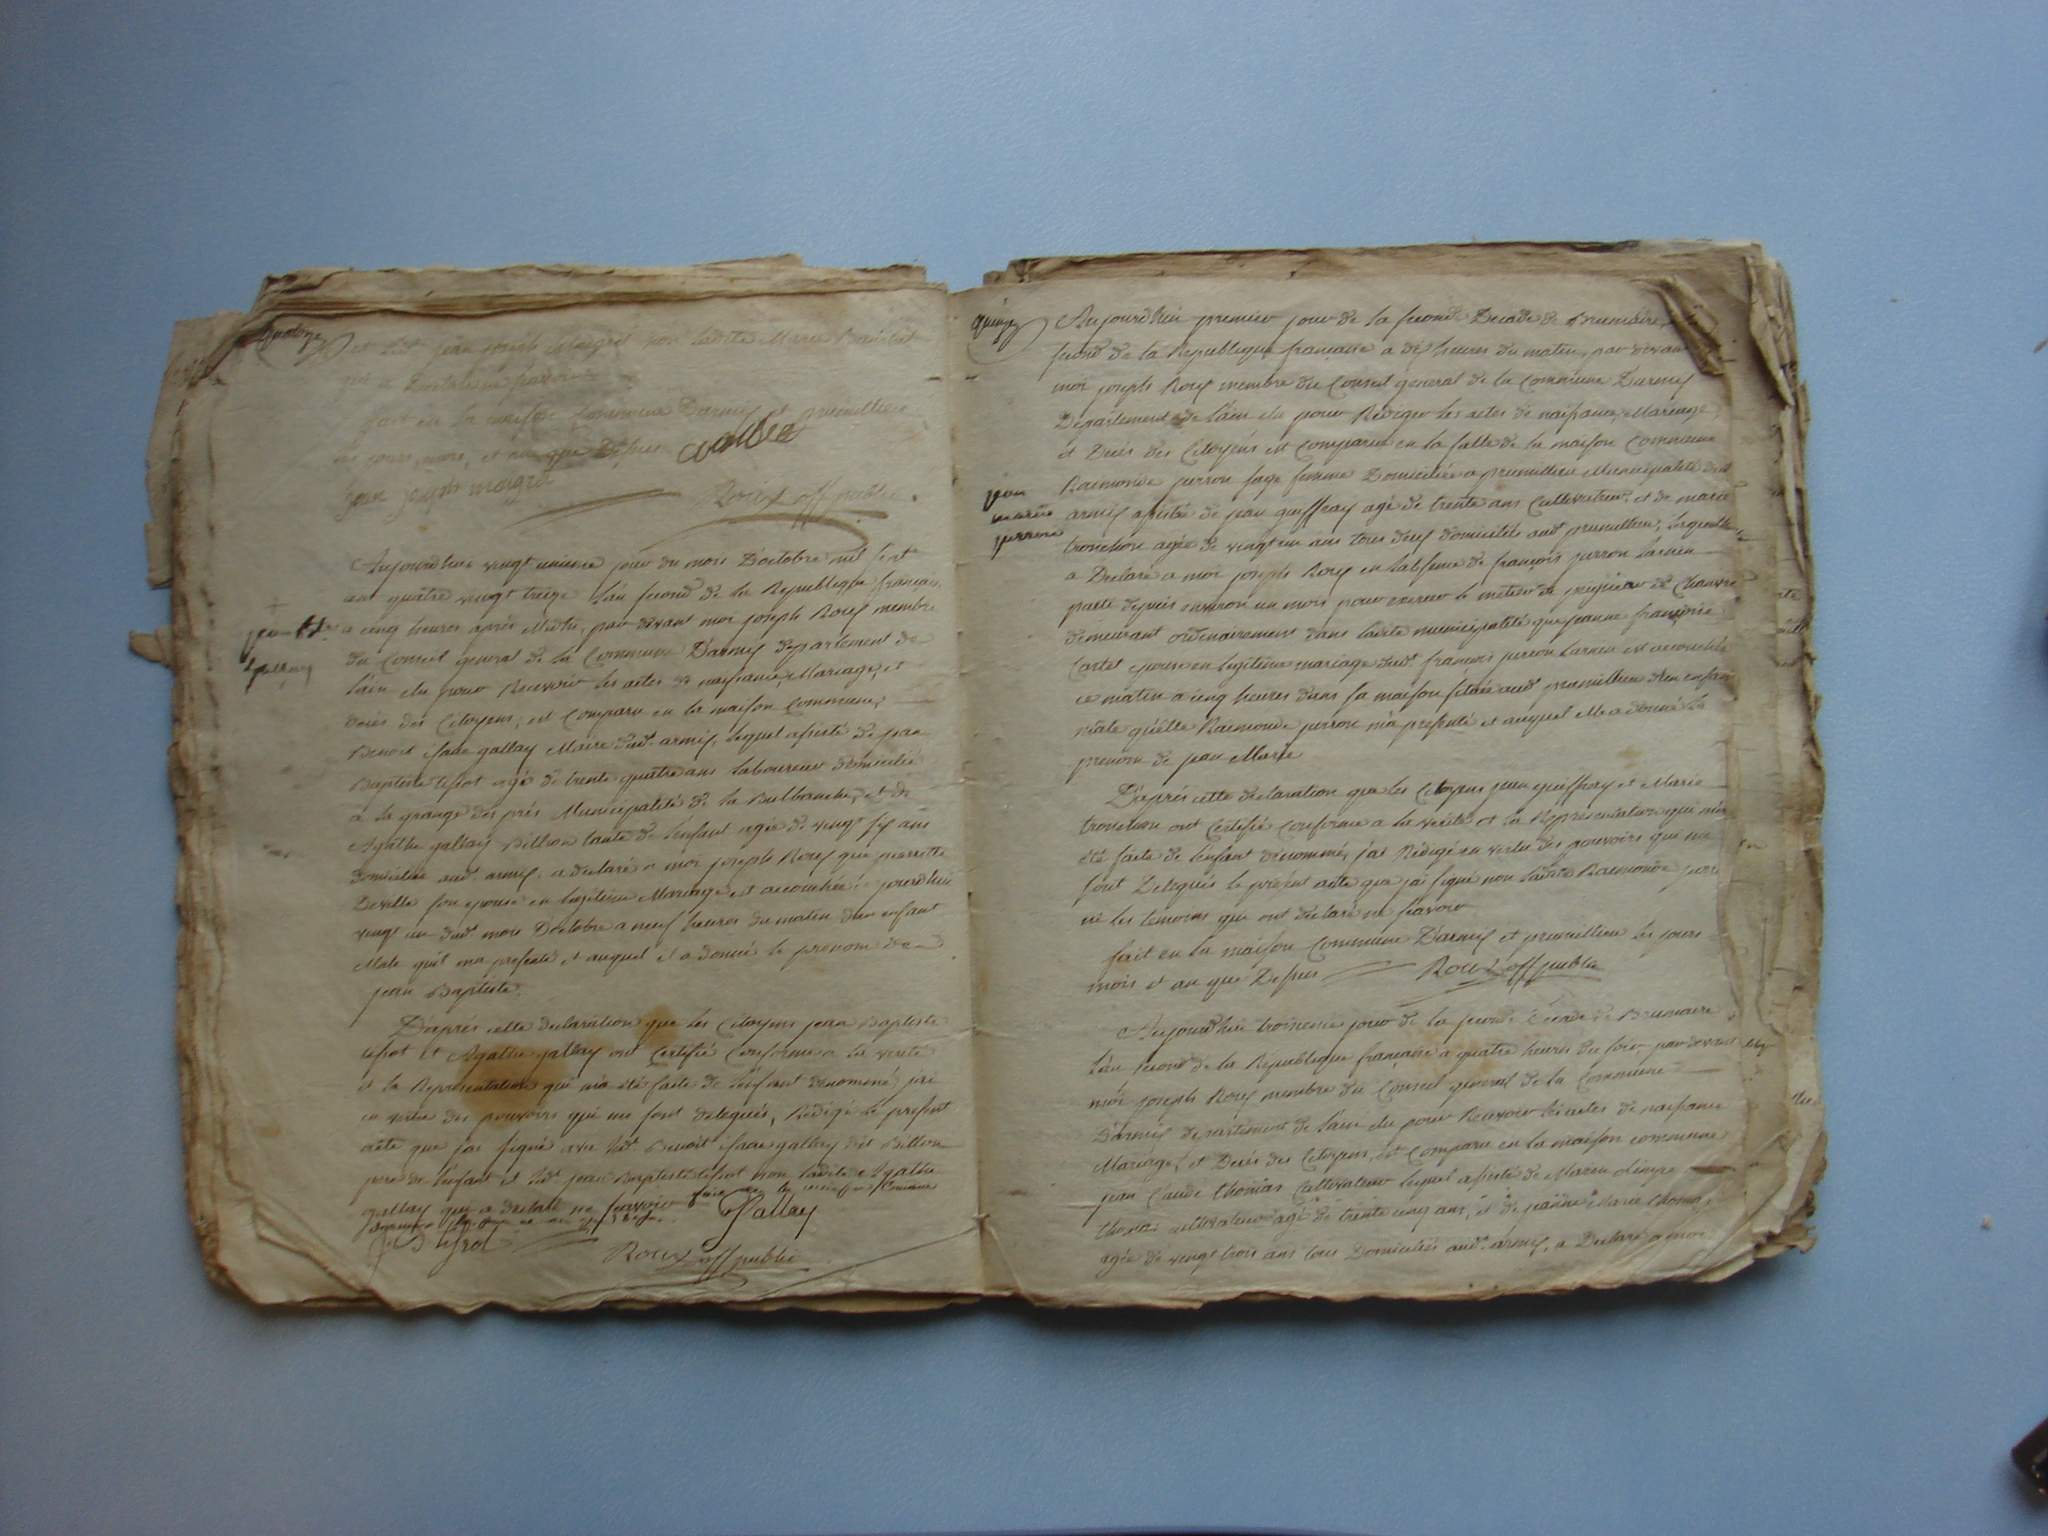 quatorze
et led. jean joseph Maigret non ladite Marie
qui a Declaré ne sçavoir
fait en la maison Commune Darmix et premillieu
les jours, mois, et an que Dessus
jean joseph maigret
Roux off public
Aujourdhuy vingt unieme jour du mois D'octobre mil sept
cent quatre vingt treize L'an second de la Republique françaiss
a cinq heures après Midi, par devant moi joseph Roux membre
jean Bte
gallay
du Conseil general de la Commune D'armix departement de
l'ain elu pour Recevoir les actes de naissance, Mariage, et
decès des Citoyens, est comparu en la maison Commune,
Benoit isaac gallay Maire dud. armix, lequel assisté de jean
Baptiste tissot agé de trente quatre ans laboureur domicilié
a la grange des près Municipalité de la Burbanche, et de
Agathe gallay Billion tante de l'enfant agée de vingt six ans
domiciliée aud. armix, a declaré a moi joseph Roux que pierrette
Deville son epouse en legitime Mariage est accouchée ce jourdhui
vingt un dud. mois Doctobre a neuf heures du matin d'un enfant
Male qu'il m'a presenté et auquel il a donné le prenom de
jean Baptiste.
D'après cette declaration que les Citoyens jean Baptiste
tissot et Agathe gallay ont certifié conforme a la verité
et la Representation qui m'a été faite de l'enfant denommé, j'ai
en vertu des pouvoirs qui me sont delegués, Redigé le present
acte que j'ai signé avec led. Benoit isaac gallay dit Billion
pere de l'enfant et led. jean Baptiste tissot non ladite Agathe
gallay qui a declaré ne sçavoir fait en la maison Commune
Gallay
J B tissot
Roux off public
quinze
Aujourdhui premier jour de la seconde Decade de Brumaire
second de la Republique française a dix heures du matin, par devant
moi joseph Roux membre du Conseil general de la Commune Darmix
Departement de L'ain elu pour Rediger les actes de naissance, Mariage,
et Decès des Citoyens est comparue en la salle de la maison Commune
Raemonde perron sage femme Domiciliée a premillieu Municipalité dud.
jean
marie
perron
armix assistée de jean guiffray agé de trente ans Cultivateur, et de marie
tronchon agée de vingt un ans tous deux domiciliés aud. premillieu, laquelle
a Declaré a moi joseph Roux en l'absence de françois perron
parti depuis environ un mois pour exercer le metier de peigneur de Chanvre
demeurant ordinairement dans ladite municipalité que jeanne françoise
Cartel epouse en legitime mariage dud. françois perron est accouchée
ce matin a cinq heures dans sa maison sitúée aud. premillieu d'un enfant
mâle qu'elle Raemonde perron m'a presenté et auquel elle a donné le
prenom de jean Marie
D'après cette declaration que les Citoyens jean guiffray et Marie
tronchon ont certifié conforme a la verité et la Representation qui m'a
été faite de l'enfant denommé, j'ai Redigé en vertu des pouvoirs qui me
sont Delegués le present acte que j'ai signé non ladite Raemonde perron
ni les temoins qui ont declaré ne sçavoir
fait en la maison Commune D'armix et premillieu les jours
mois et an que Dessus Roux off public
Aujourdhui troisieme jour de la seconde Decade de Brumaire
L'an second de la Republique française a quatre heures du soir par devant
moi joseph Roux membre du Conseil general de la Commune
D'armix departement de l'ain elu pour Recevoir les actes de naissance
Mariage, et Decès des Citoyens, est comparu en la maison commune
jean Claude thomas Cultivateur lequel assisté de
thomas cultivateur agé de trente cinq ans, et de jeanne Marie thomas
agée de vingt trois ans tous Domiciliés aud. armix, a Declaré a moi